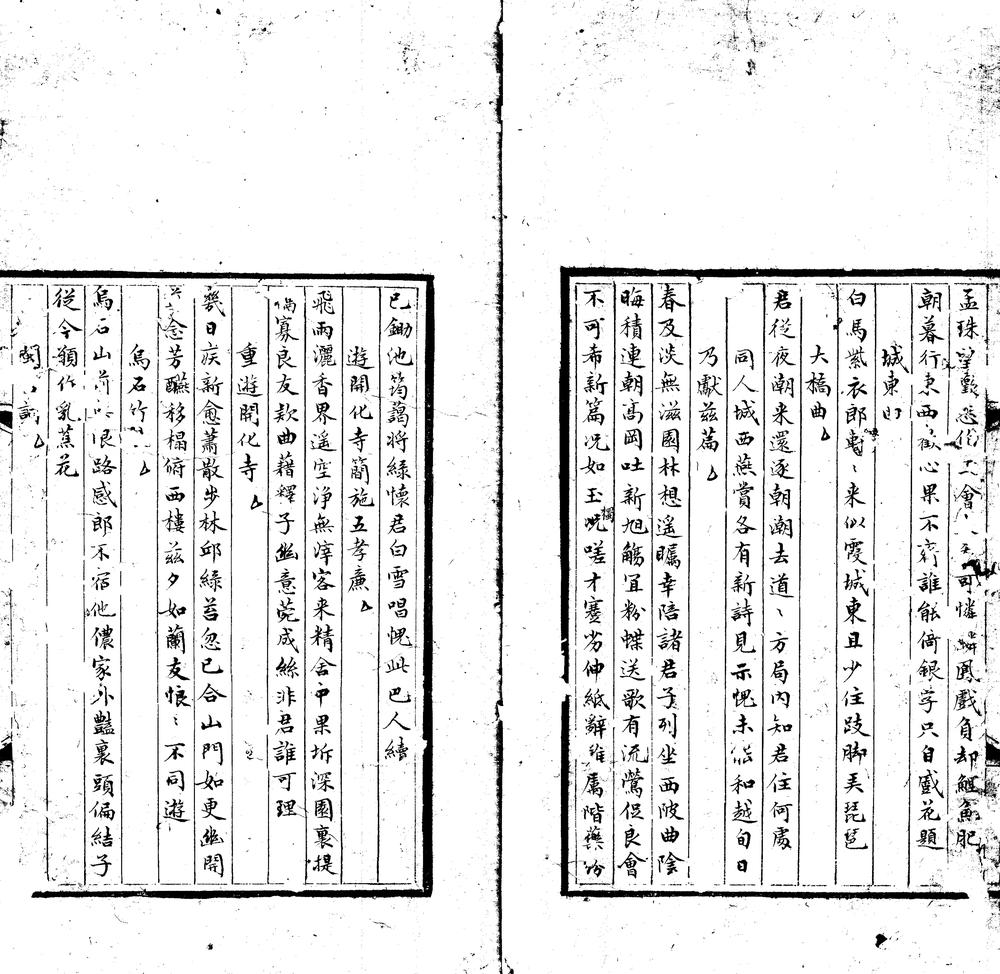 孟珠望歡愁 會 可憐 鳳戲負却鯉魚肥
朝暮行東西歡心果不 誰能倚銀字只自感花題
城東
白馬紫衣郎 〻来似霞城東且少住跂脚弄琵琶
大橋曲
君從夜潮来還逐朝潮去道〻方局内知君住何處
同人城西蕪賞各有新詩見示愧未能和越旬日
乃獻兹篇
春及淡無滋園林想遥矚幸陪諸君子列坐西陂曲陰
晦積連朝髙岡吐新旭觴宜粉蝶送歌有流鶯促良會
不可希新篇况如玉 嗟才蹇劣伸紙辭難屬階藥
已鋤池筠藹将緑懷君白雪唱愧此巴人續
遊開化寺簡施五孝亷
飛雨灑香界遥空淨無滓客来精舍中果坼深園裏提
寡良友欵曲藉釋子幽意菀成絲非君誰可理
重遊開化寺
幾日疾新愈蕭散步林邱緑苔忽已合山門如更幽開
念芳醼移榻俯西樓兹夕如蘭友悵〻不同遊
烏石竹
烏石山前 限路感郎不宿他儂家外豔裏頭偏結子
從今願作乳蕉花